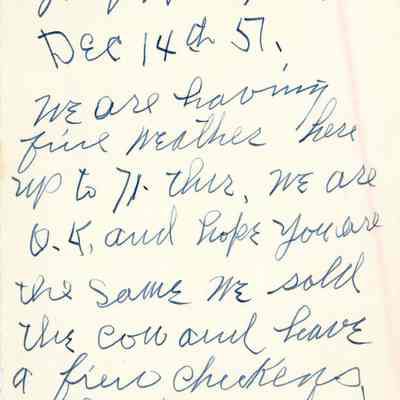 Dec 14th 57.
We are having
fine weather here
up to 71. Thur. We are
O.K. and hope you are
the same We sold
the cow and have
a fiew chickens,